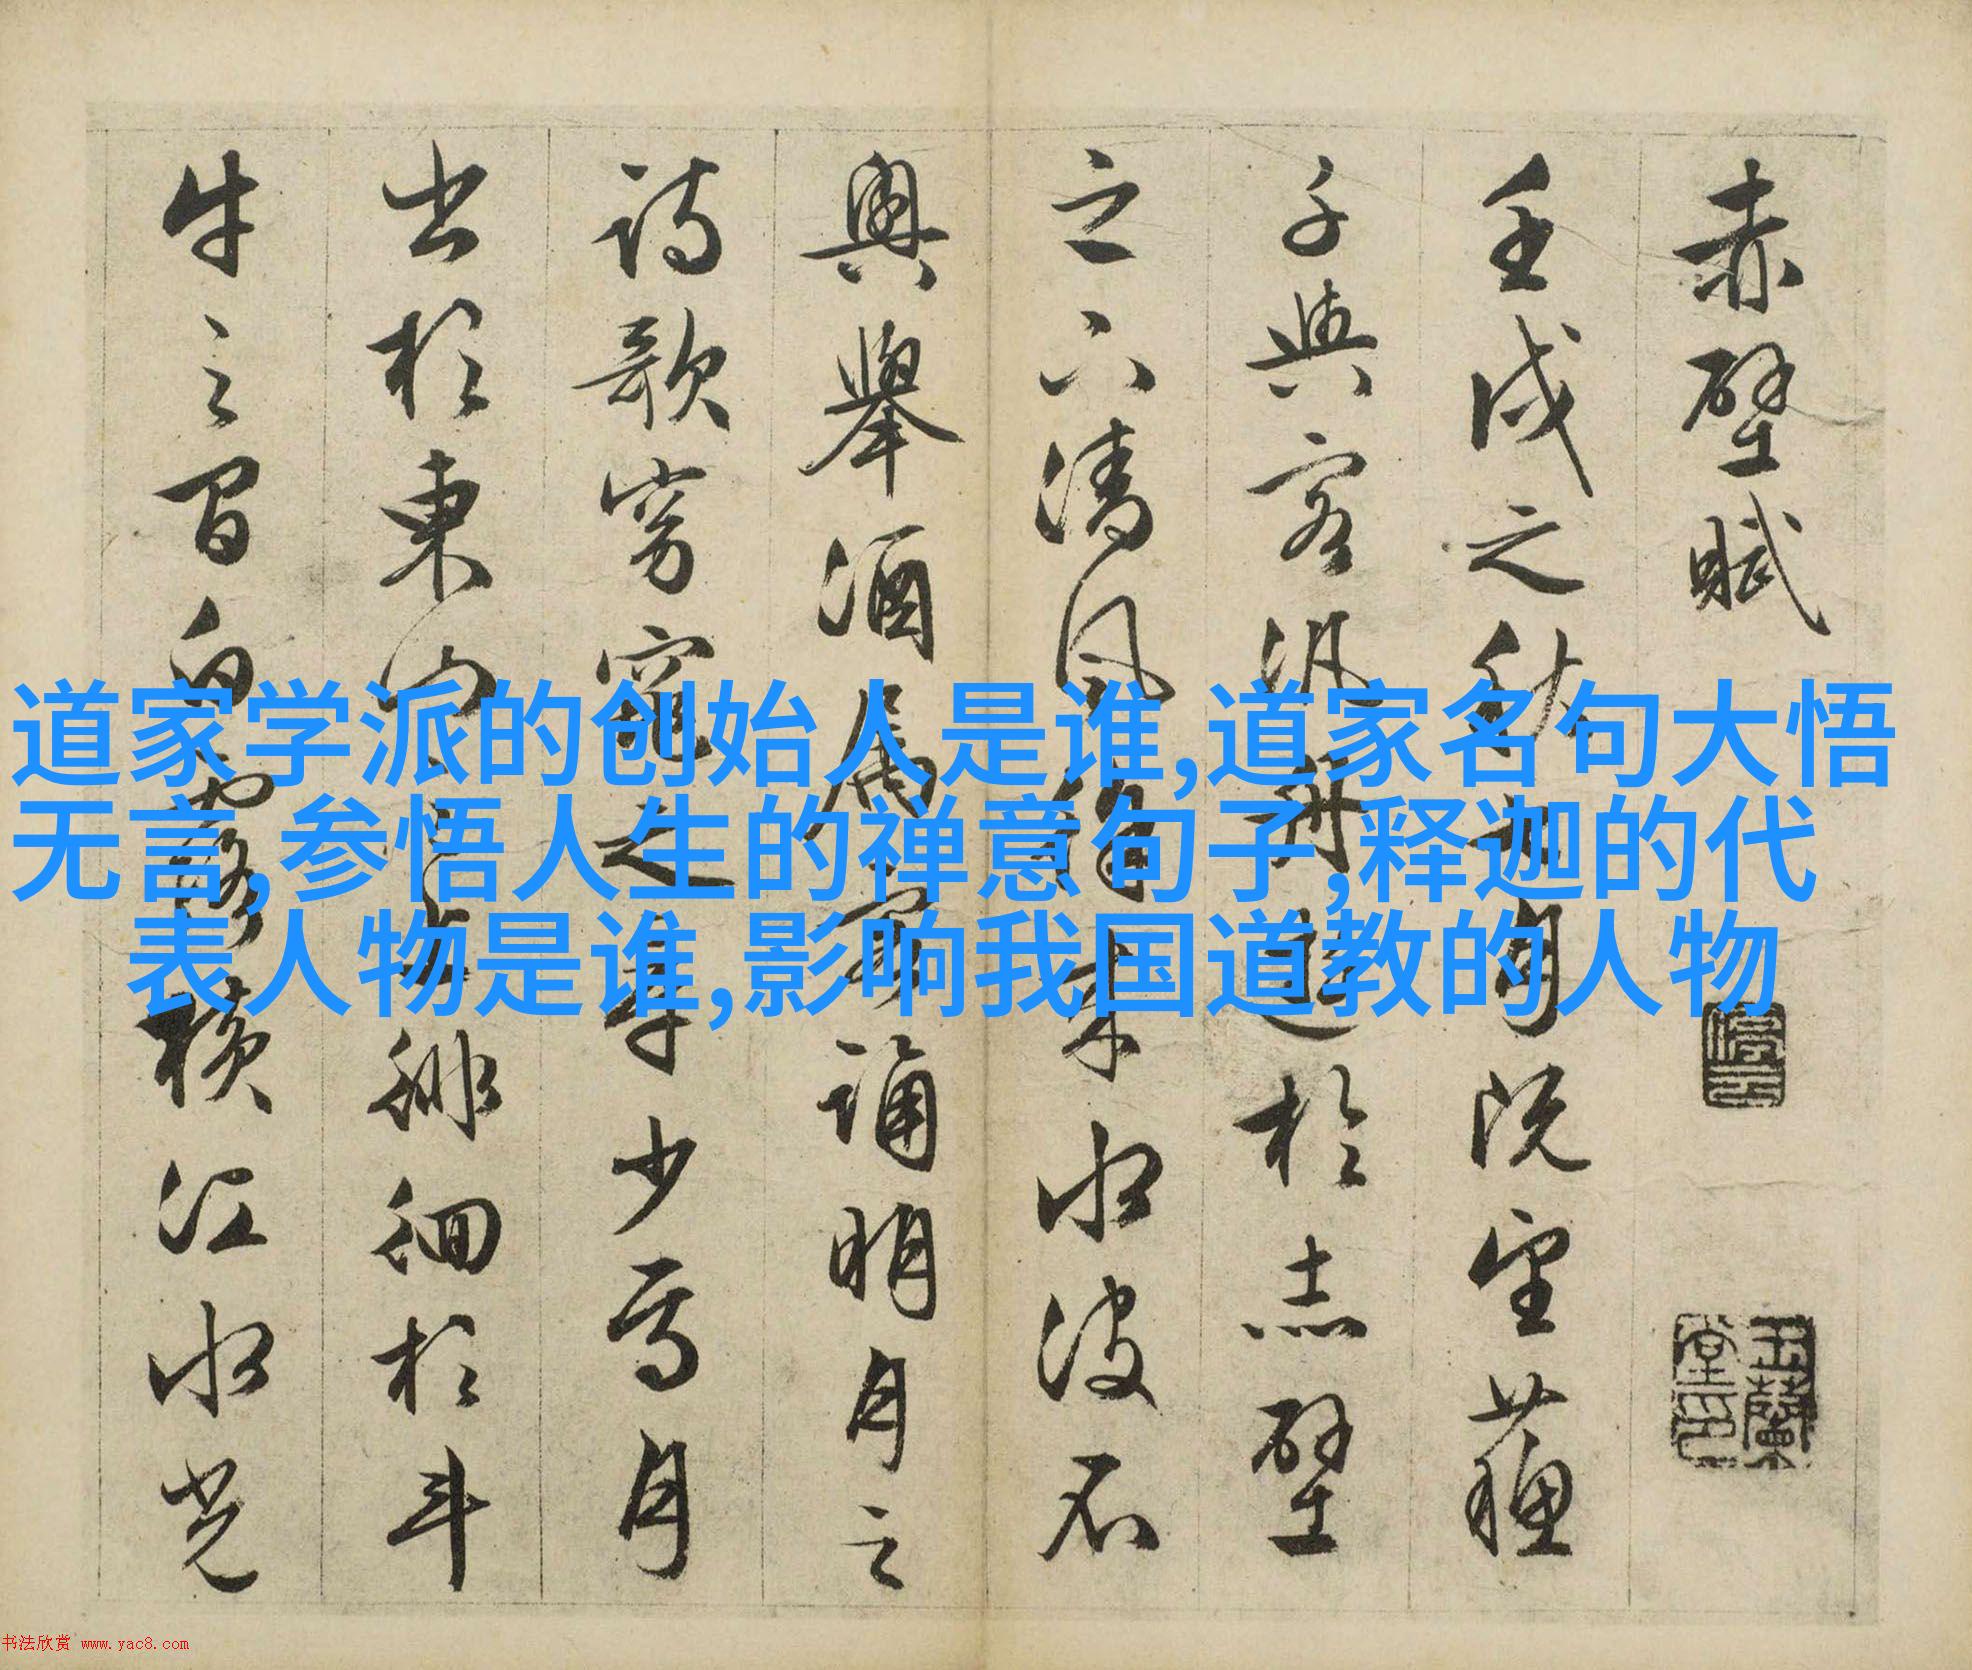 赤壁賦
壬戌之秋七月既望蘇
子與客汎舟遊於赤壁
之下清風徐來水波不
興舉酒屬客誦明月之
詩歌窈窕之章少焉月
出於東山之上徘徊於斗
牛之間白露橫江水光
停雲
玉蘭堂印
道家学派的创始人是谁,道家名句大悟
无言,参悟人生的禅意句子,释迦的代
表人物是谁,影响我国道教的人物
书法欣赏 www.yac8.com